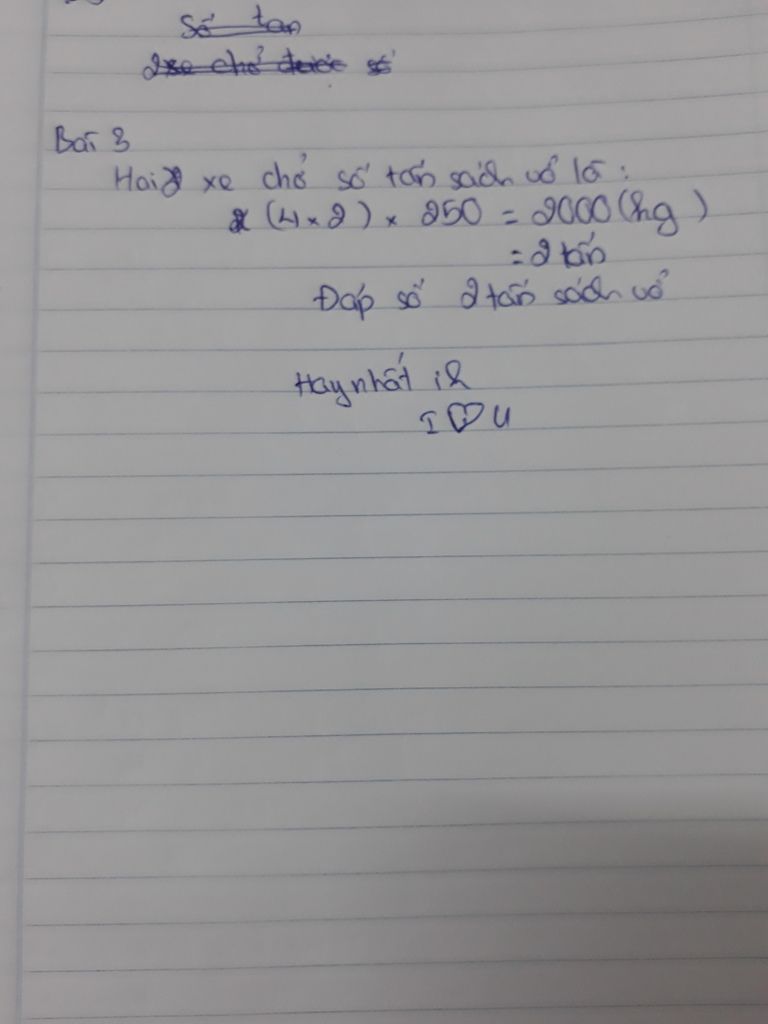 Số tan
2xe chở được số
Bài 3
Hai xe chở số tấn sách vở là:
(4 × 2) × 250 = 2000 (kg)
= 2 tấn
Đáp số 2 tấn sách vở
Hay nhất ik
I ♡ U